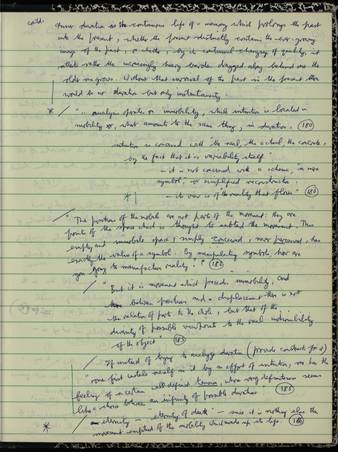 contd. Inner duration is the continuous life of a memory which prolongs the past
into the present, whether the present distinctly contains the ever-growing
image of the past, or whether, by its continual changing of quality, it
attests rather the increasingly heavy burden dragged along behind one the
older one grows. Without that survival of the past in the present there
would be no duration but only instantaneity.
* / "... analysis operates on immobility, while intuition is located in
mobility or, what amounts to the same thing, in duration. (180)
intuition is concerned with the real, the actual, the concrete,
by the fact that it is variability itself"
– it is not concerned with a scheme, "a mere
symbol" or simplified reconstruction
* | – it is one of the reality that flows" (180)
/ "The positions of the mobile are not part of the movement: they are
points of the space which is thought to underlie the movement. This
empty and immobile space, simply conceived, never perceived, has
exactly the value of a symbol. By manipulating symbols, how are
you going to manufacture reality?" (182)
/ "But it is movement which precedes immobility, and
between positions and a displacement there is not
the relation of parts to the whole, but that of the
diversity of possible viewpoints to the real indivisibility
of the object" (183)
/ If instead of trying to analyze duration (provide concepts for it)
"one first installs oneself in it by an effort of intuition, one has the
feeling of a certain well-defined tension, whose very definiteness seems
like a choice between an infinity of possible durations (185)
* / – eternity "eternity of death" – since it is nothing else than
movement emptied of the mobility which made up its life. (186)